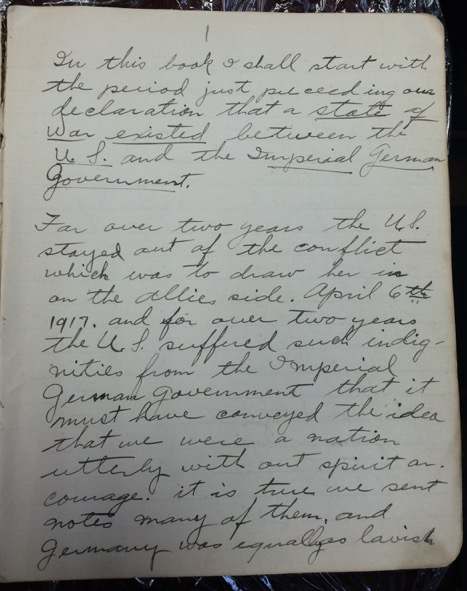 1
In this book I shall start with
the period just preceeding our
declaration that a state of
war existed between the
U.S. and the Imperial German
Government.
For over two years the U.S.
stayed out of the conflict
which was to draw her in
on the allies side. April 6th
1917. and for over two years
the U.S. suffered such indig-
nities from the Imperial
German Government that it
must have conveyed the idea
that we were a nation
utterly with out spirit or
courage. it is true we sent
notes many of them, and
Germany was equally as lavish